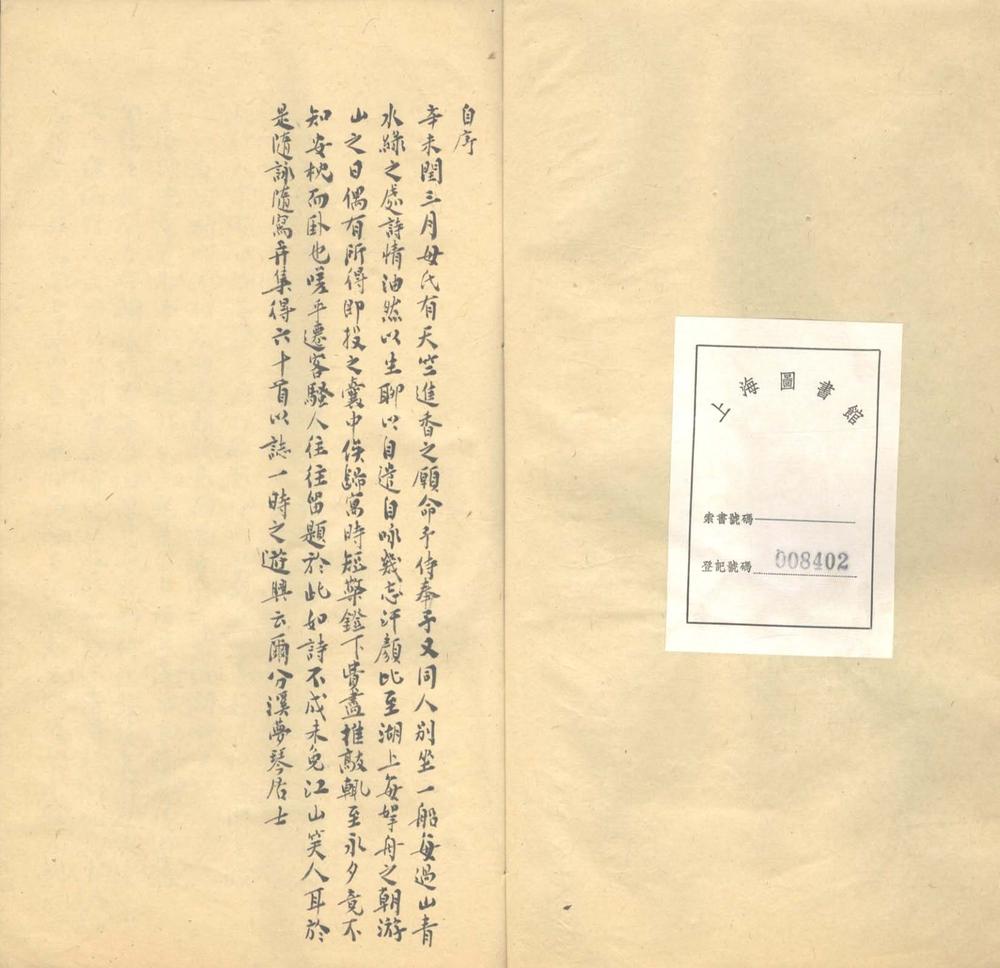 上海圖書館
索書號碼
登記號碼 008402
自序
辛未閏三月母氏有天竺進香之願命予侍奉予又同人別坐一船每過山青
水綠之處詩情油然以生聊以自遣自咏幾忘汗顏比至湖上每挐舟之朝游
山之日偶有所得即投之囊中俟歸寓時短檠鐙下費盡推敲輒至永夕竟不
知安枕而臥也嗟乎遷客騷人往往留題於此如詩不成未免江山笑人耳於
是隨詠隨寫弆集得六十首以誌一時之遊興云爾分溪夢琴居士